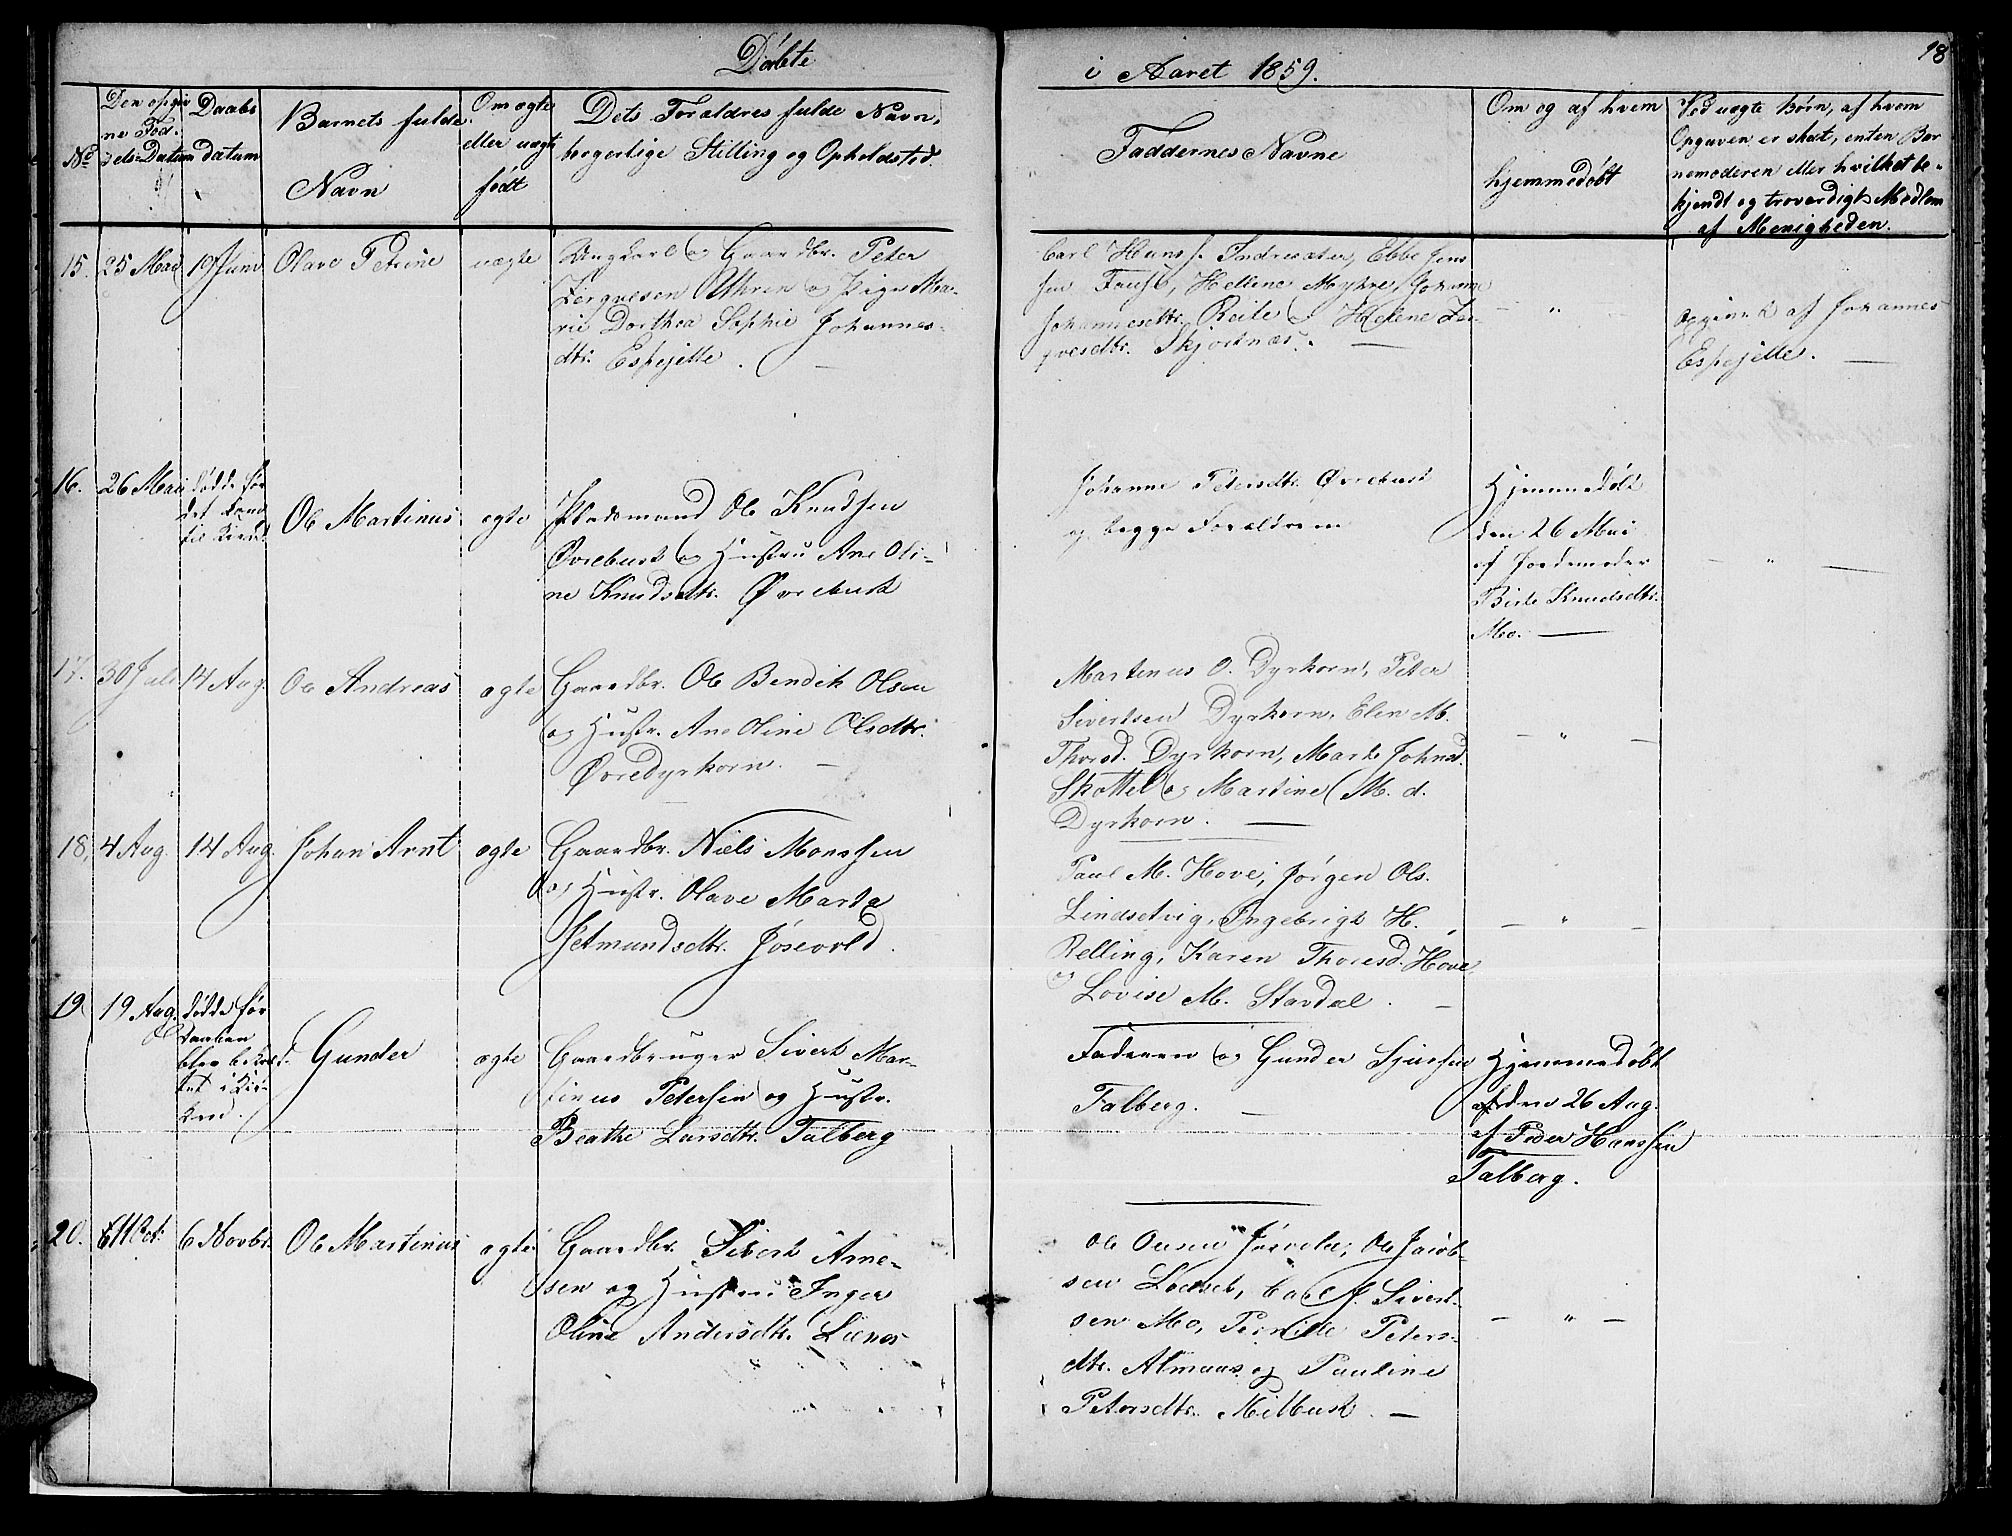 Døbte
i Aaret 1859.
18
No
Den opgiv
ne Fød-
sels-Datum
Daabs
datum
Barnets fulde
Navn
Om ægte
eller uægte
født
Dets Forældres fulde Navn,
borgerlige Stilling og Opholdsted.
Faddernes Navne
Om og af hvem
hjemmedøbt
Ved uægte Børn, af hvem
Opgaven er skeet, enten Bar
nemoderen eller hvilket be-
kjendt og troværdigt Medlem
af Menigheden.
15.
25 Mai
19 Juni
Olave Petrine
uægte
Ungkarl og Gaardbr. Peter
Zergvesen Uhren og Pige Ma-
rie Dorthea Sophie Johannes-
dtr. Espejelle. —
Carl Hanss. Indresæter, Ebbe Jens
sen Fausk, Hellene Myhre, Johanne
Johannesdtr. Reite og Helene Zer-
gvesdtr. Skjortnæs. —
— " —
Opgivet af Johannes
Espejelle. —
16.
26 Mai
døde før
det kom
til Kirke
Ole Martinus
ægte
Pladsmand Ole Knudsen
Øvrebust og Hustru Ane Oli-
ne Knudsdtr. Øvrebust
Johanne Petersdtr. Øvrebust
og begge Forældrene
Hjemmedøbt
den 26 Mai
af Jordemoder
Birte Knudsdtr.
Mo. —
— " —
17.
30 Juli
14 Aug.
Ole Andreas
ægte
Gaardbr. Ole Bendik Olsen
og Hustr. Ane Oline Olsdtr.
Øvredyrkorn. —
Martinus O. Dyrkorn, Peter
Sivertsen Dyrkorn, Elen M.
Thorsd. Dyrkorn, Marte Johnsd.
Skottel og Martine M. d.
Dyrkorn. —
— " —
18.
4 Aug.
14 Aug.
Johan Arnt
ægte
Gaardbr. Niels Monssen
og Hustr. Olave Marta
Setmundsdtr. Jøsevold.
Paul M. Hove, Jørgen Ols.
Lindsetvig, Ingebrigt H.
Relling, Karen Thoresd. Hove
og Lovise M. Stavdal. —
— " —
19.
19 Aug.
døde før
Daaben
blev bekræf
tet i Kir-
ken.
Gunder
ægte
Gaardbruger Sivert Mar-
tinus Petersen og Hustr.
Beathe Larsdtr. Talberg
Faderen og Gunder Sjursen
Talberg. —
Hjemmedøbt
den 26 Aug.
af Peder Hanssen
Talberg.
20.
11 Oct.
6 Novbr.
Ole Martinus
ægte
Gaardbr. Sivert Arne-
sen og Hustru Inger
Oline Andersdtr. Lienes
Ole Olsen Jøsvold, Ole Jacob-
sen Lødset, Carl J. Sivert-
sen Mo, Pernille Peters-
dtr. Almaas og Pauline
Petersdtr. Melbust. —
— " —